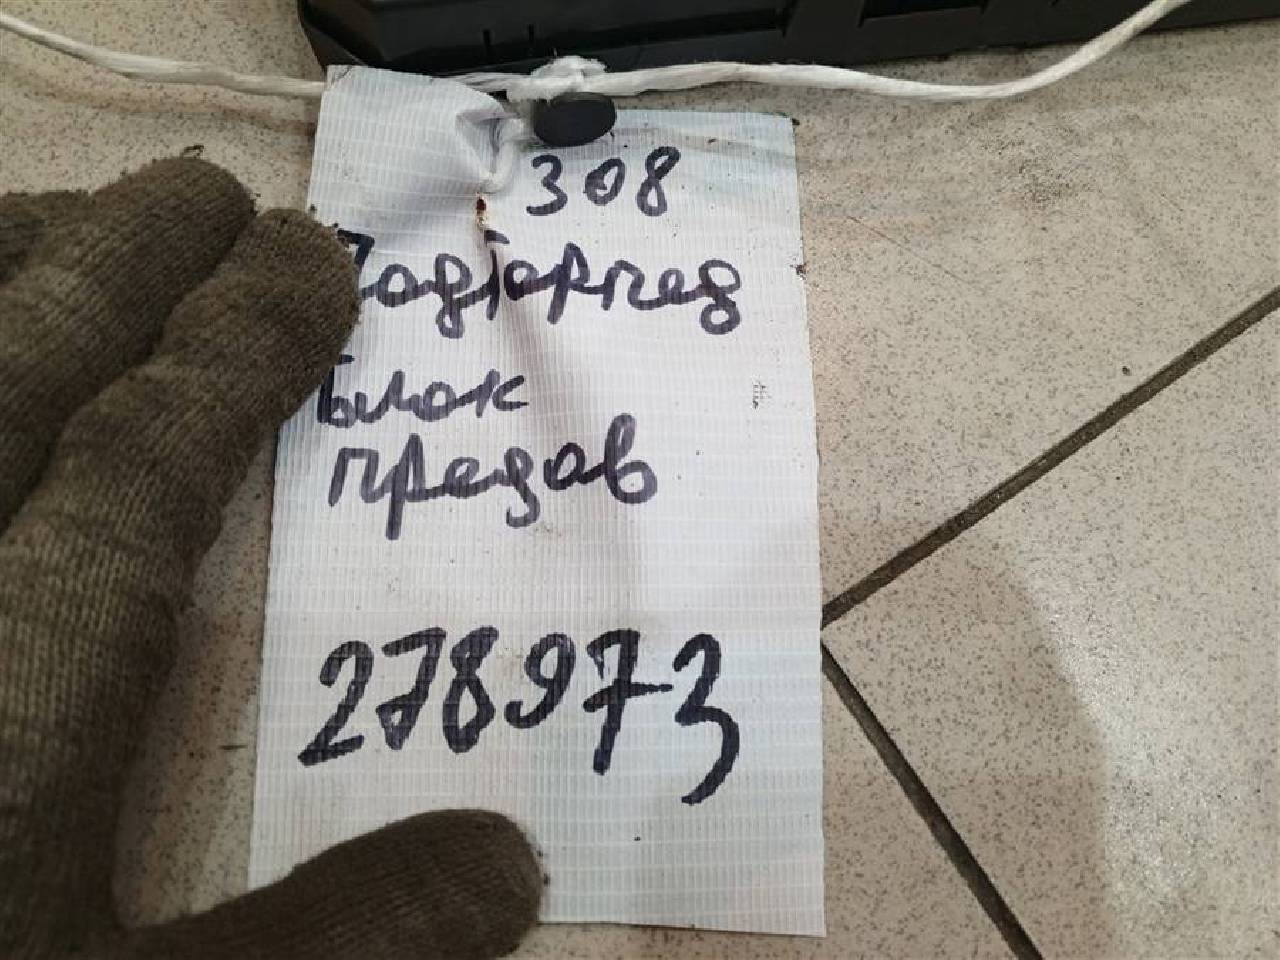 308
Подторпед
Блок
предов
278973